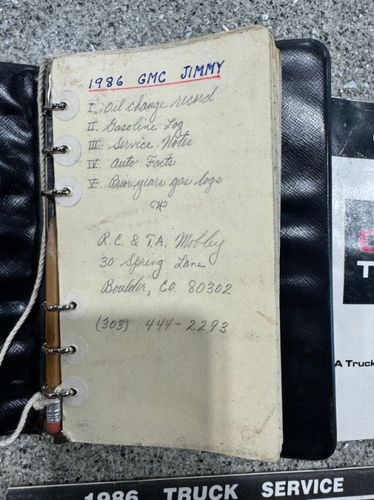 1986 GMC JIMMY
I. Oil change record
II. Gasoline Log
III. Service Notes
IV. Auto Facts
V. Prior years gas logs
R.C. & T.A. Mobley
30 Spring Lane
Boulder, CO 80302
(303) 444-2293
T
A Truck
1986 TRUCK SERVICE